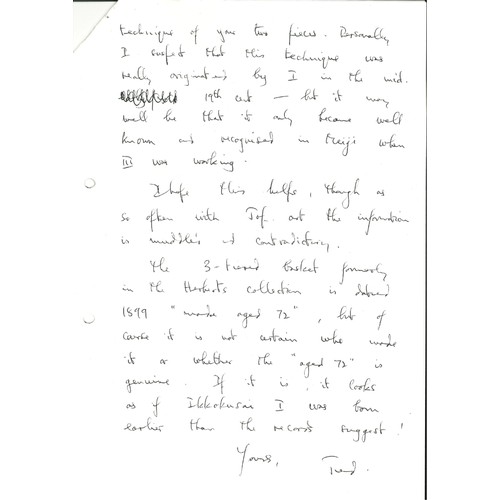 technique of your two pieces. Personally
I suspect that this technique was
really originated by I in the mid.
19th cent — but it may
well be that it only became well
known and recognised in Meiji when
III was working.
I hope this helps, though as
so often with Jap. art the information
is muddled and contradictory.
The 3-tiered basket formerly
in the collection is dated
1899 "made aged 72", but of
course it is not certain who made
it or whether the "aged 72" is
genuine. If it is, it looks
as if Ikkokusai I was born
earlier than the records suggest!
Yours,